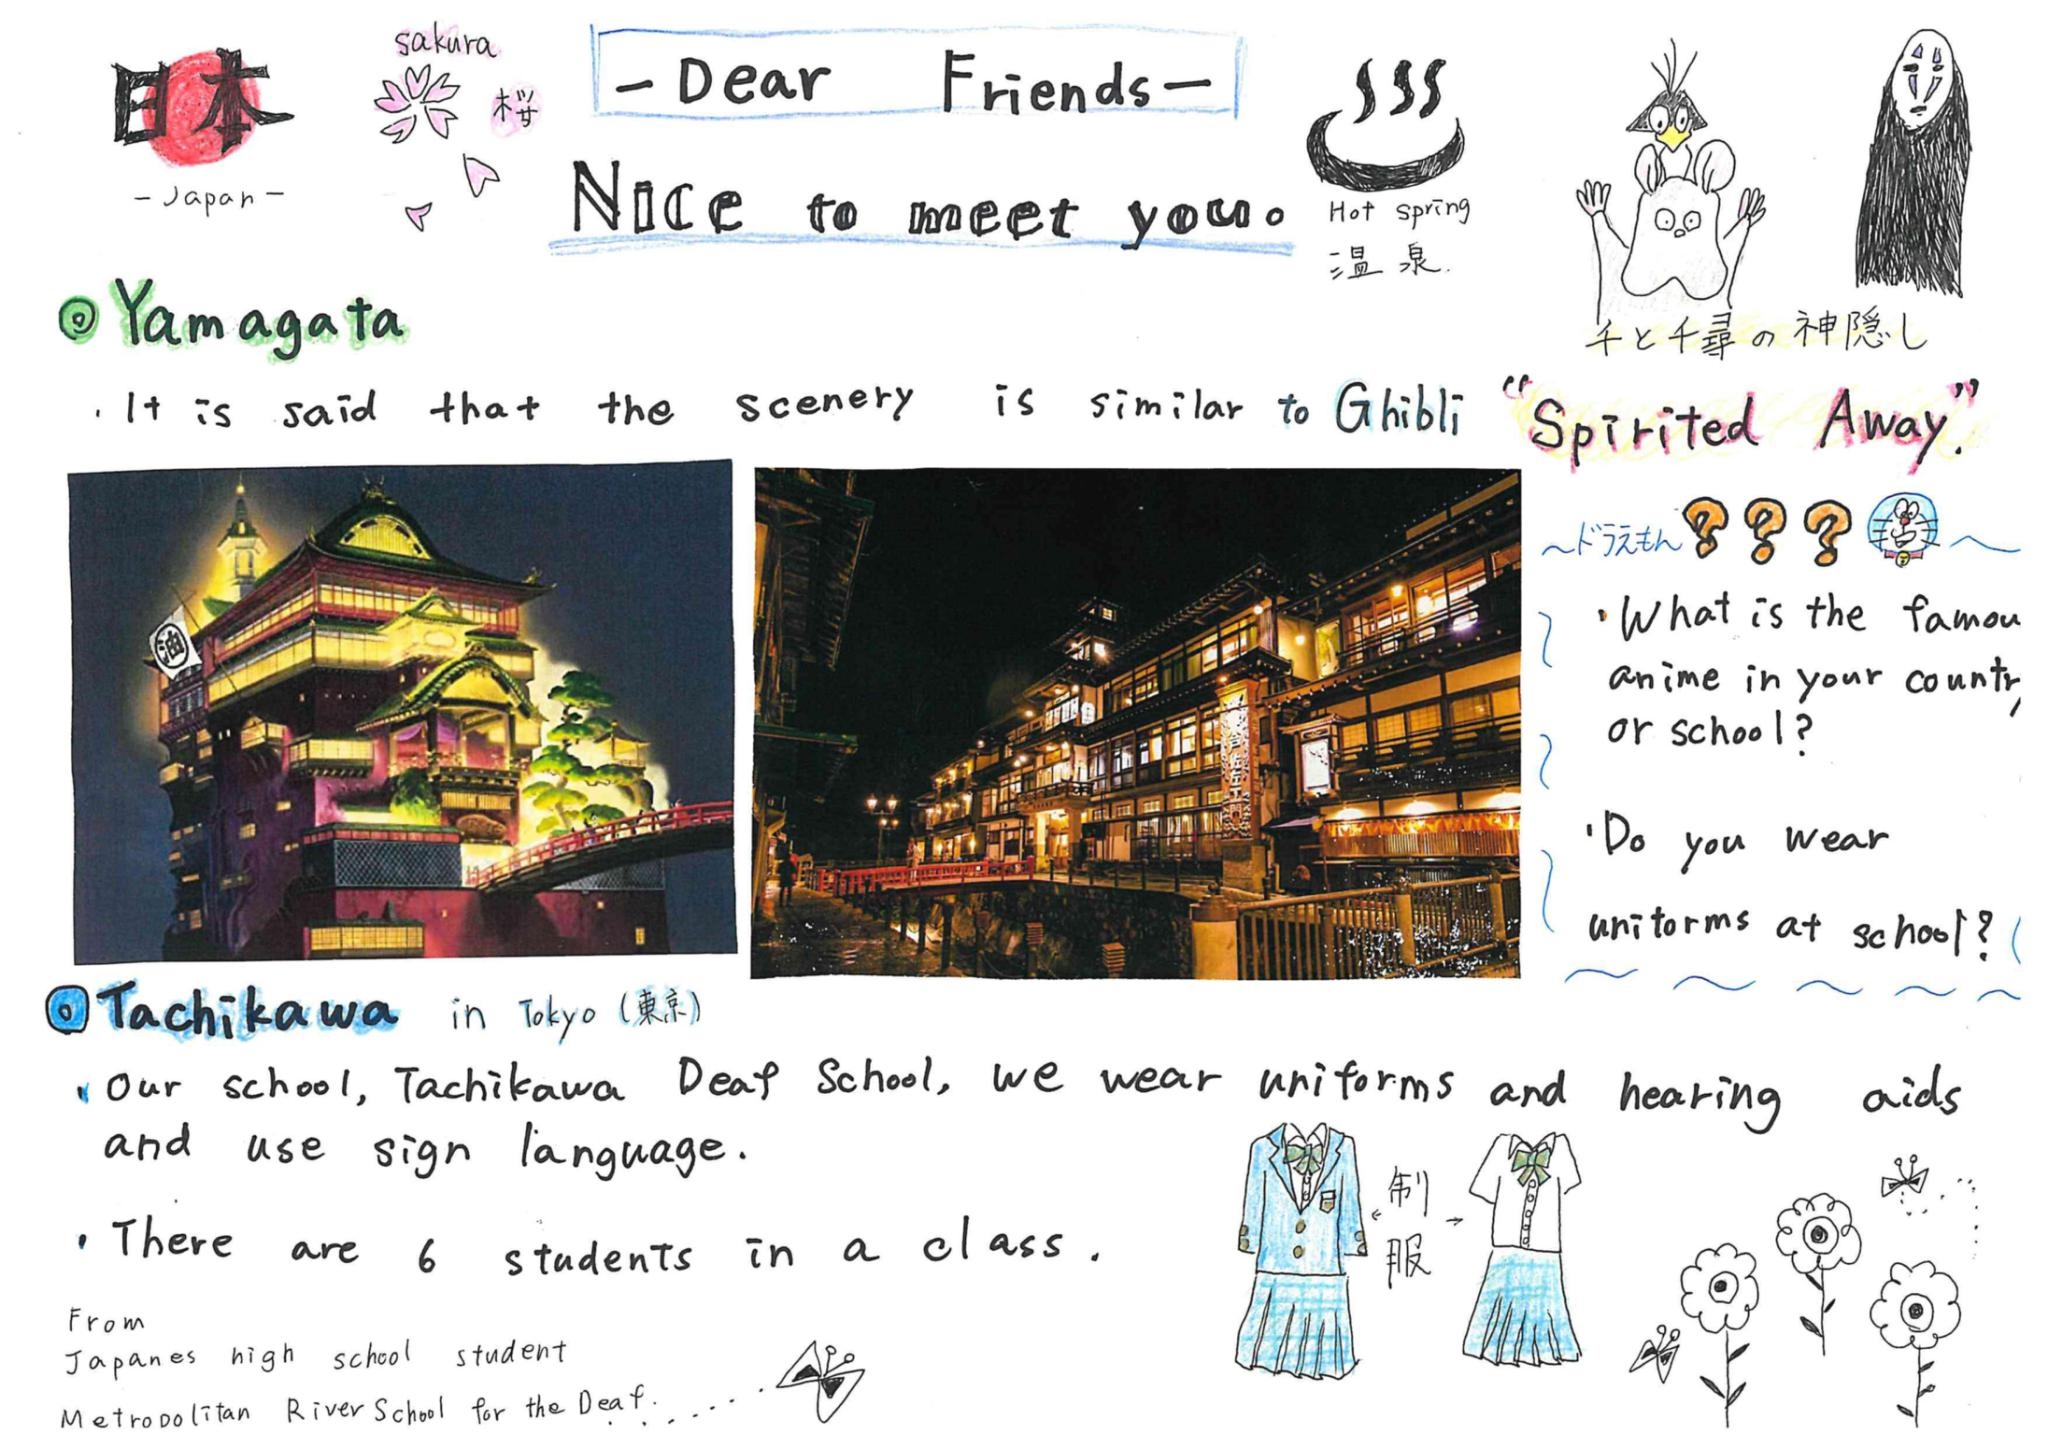 日本
-Japan-
sakura
桜
-Dear Friends-
Nice to meet you。
Hot spring
温泉.
千と千尋の神隠し
Yamagata
・It is said that the scenery is similar to Ghibli "Spirited Away".
油
~ドラえもん???~
・What is the famou
anime in your countr,
or school?
・Do you wear
uniforms at school?
Tachikawa in Tokyo (東京)
・Our school, Tachikawa Deaf School, we wear uniforms and hearing aids
and use sign language.
・There are 6 students in a class.
制
服
From
Japanes high school student
Metropolitan River School for the Deaf.